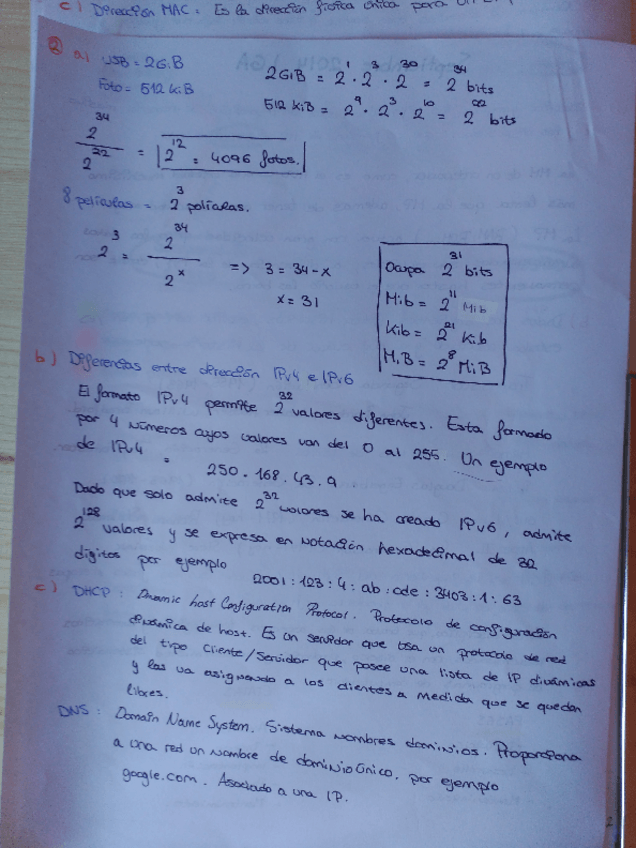 c) Dirección MAC: Es la dirección física única para
② a) USB = 2GiB
Foto = 512 KiB
2GiB = 2¹ · 2³ · 2³⁰ = 2³⁴ bits
512 KiB = 2⁹ · 2³ · 2¹⁰ = 2²² bits
2³⁴ / 2²² = 2¹² = 4096 fotos.
8 películas = 2³ películas.
2³ = 2³⁴ / 2ˣ => 3 = 34 - x
x = 31
Ocupa 2³¹ bits
Mib = 2¹¹ Mib
Kib = 2²¹ Kib
MiB = 2⁸ MiB
b) Diferencias entre dirección IPv4 e IPv6
El formato IPv4 permite 2³² valores diferentes. Esta formado
por 4 números cuyos valores van del 0 al 255. Un ejemplo
de IPv4 =
250.168.43.9
Dado que solo admite 2³² valores se ha creado IPv6, admite
2¹²⁸ valores y se expresa en notación hexadecimal de 32
digitos por ejemplo
2001:123:4:ab:cde:3403:1:63
c) DHCP: Dinamic host Configuration Protocol. Protocolo de configuración
dinámica de host. Es un servidor que usa un protocolo de red
del tipo Cliente/Servidor que posee una lista de IP dinámicas
y las va asignando a los clientes a medida que se quedan
libres.
DNS: Domain Name System. Sistema nombres dominios. Proporciona
a una red un nombre de dominio único, por ejemplo
google.com. Asociado a una IP.
2